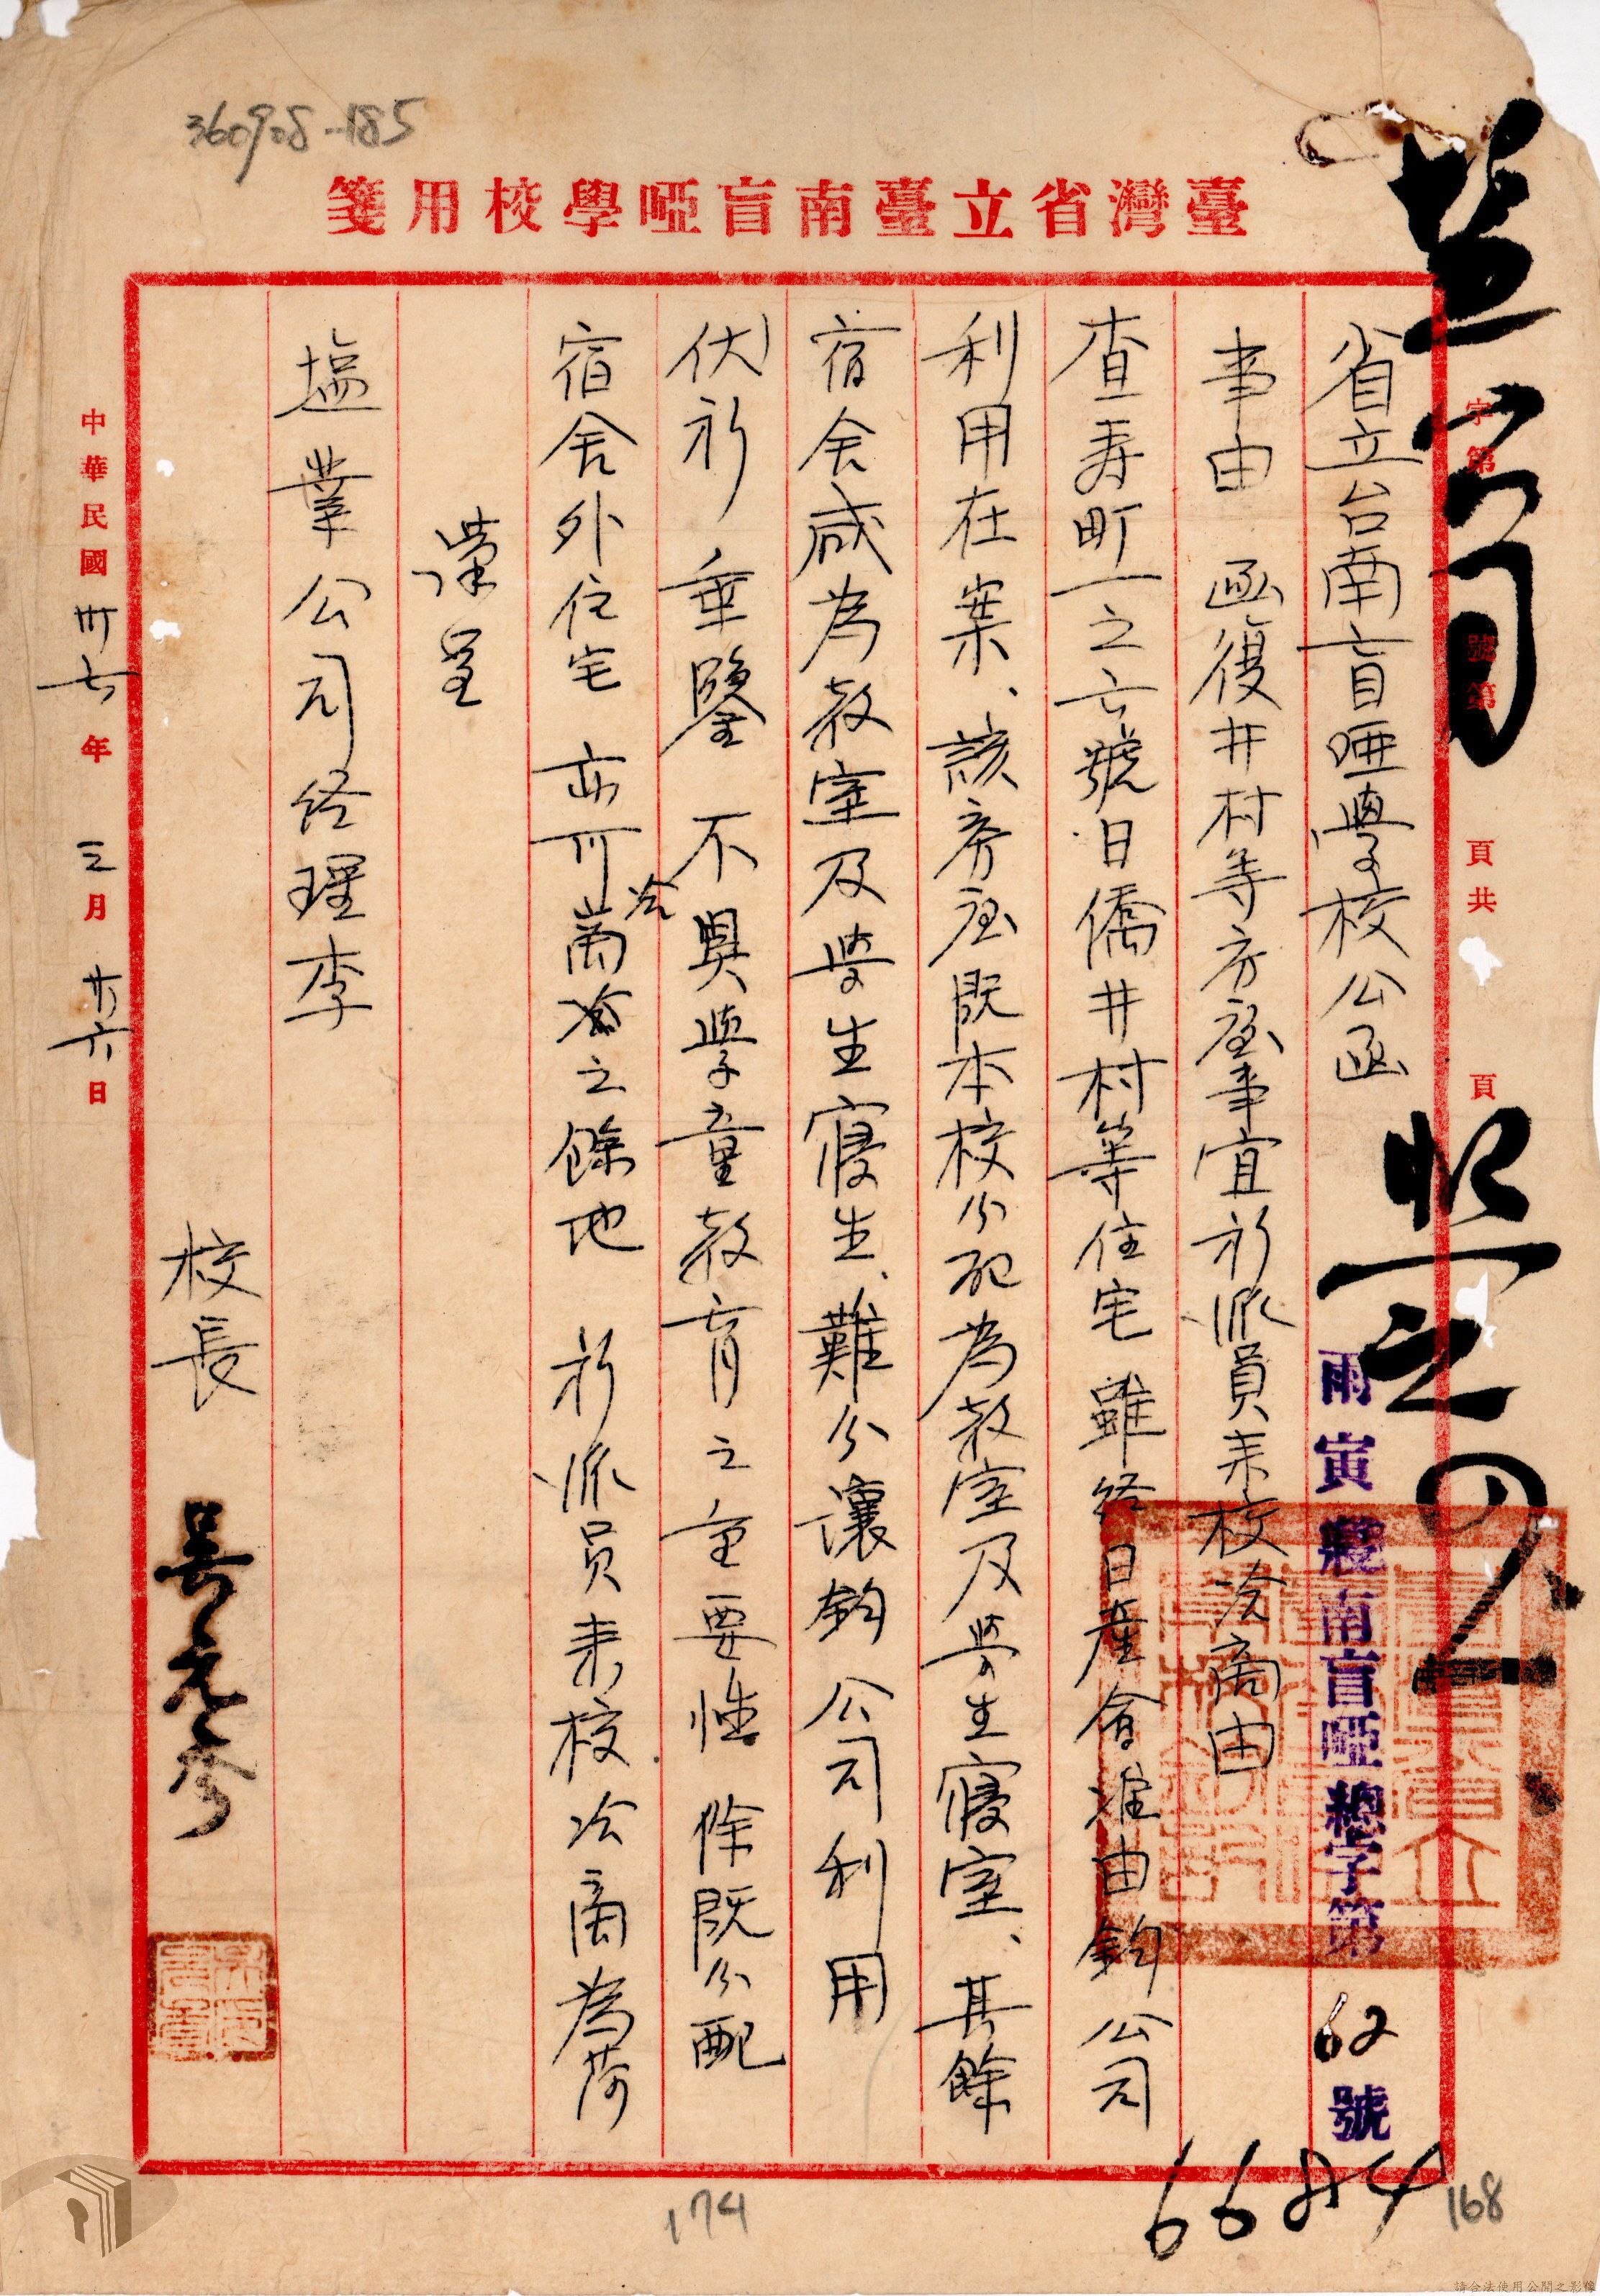 360908-185
臺灣省立臺南盲啞學校用箋
字第 號第 頁共 頁
省立台南盲唖學校公函
雨寅 南盲啞總字第62號
事由 函復井村等房屋事宜祈派員来校洽商由
查寿町一之六號日僑井村等住宅雖経日産會准由鈞公司
利用在案、該房屋既本校分配為教室及學生寢室、其餘
宿舍咸為教室及學生寢生、難分讓鈞公司利用
伏祈 垂鑒 不與學童教育之重要性 除既分配
宿舍外住宅 亦可商洽之餘地 祈派员来校洽商為荷
洽
謹呈
塩業公司経理李
校長
中華民國卅七年 三月 廿六日
6684
168
174
請合法使用公開之影像